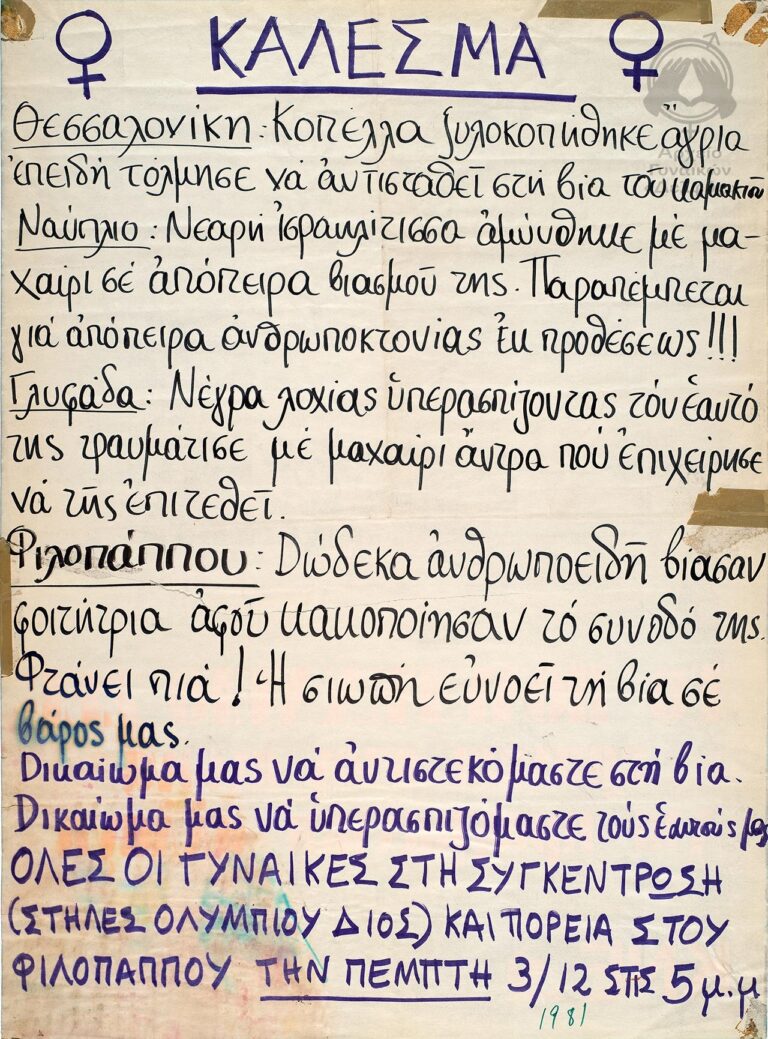 ♀ ΚΑΛΕΣΜΑ ♀
Θεσσαλονίκη: Κοπέλλα ξυλοκοπήθηκε ἄγρια
ἐπειδή τόλμησε νά ἀντισταθεῖ στή βία τοῦ καμακιοῦ
Ναύπλιο: Νεαρή ἰσραηλίτισσα ἀμύνθηκε μέ μα-
χαίρι σέ ἀπόπειρα βιασμοῦ της. Παραπέμπεται
γιά ἀπόπειρα ἀνθρωποκτονίας ἐκ προθέσεως!!!
Γλυφάδα: Νέγρα λοχίας ὑπερασπίζοντας τόν ἑαυτό
της τραυμάτισε μέ μαχαίρι ἄντρα πού ἐπιχείρησε
νά τῆς ἐπιτεθεῖ.
Φιλοπάππου: Δώδεκα ἀνθρωποειδῆ βίασαν
φοιτήτρια ἀφοῦ κακοποίησαν τό συνοδό της.
Φτάνει πιά! Ἡ σιωπή εὐνοεῖ τή βία σέ
βάρος μας.
Δικαίωμα μας νά ἀντιστεκόμαστε στή βία.
Δικαίωμα μας νά ὑπερασπιζόμαστε τούς ἑαυτούς μας
ΟΛΕΣ ΟΙ ΓΥΝΑΙΚΕΣ ΣΤΗ ΣΥΓΚΕΝΤΡΩΣΗ
(ΣΤΗΛΕΣ ΟΛΥΜΠΙΟΥ ΔΙΟΣ) ΚΑΙ ΠΟΡΕΙΑ ΣΤΟΥ
ΦΙΛΟΠΑΠΠΟΥ ΤΗΝ ΠΕΜΠΤΗ 3/12 ΣΤΙΣ 5 μ.μ
1981